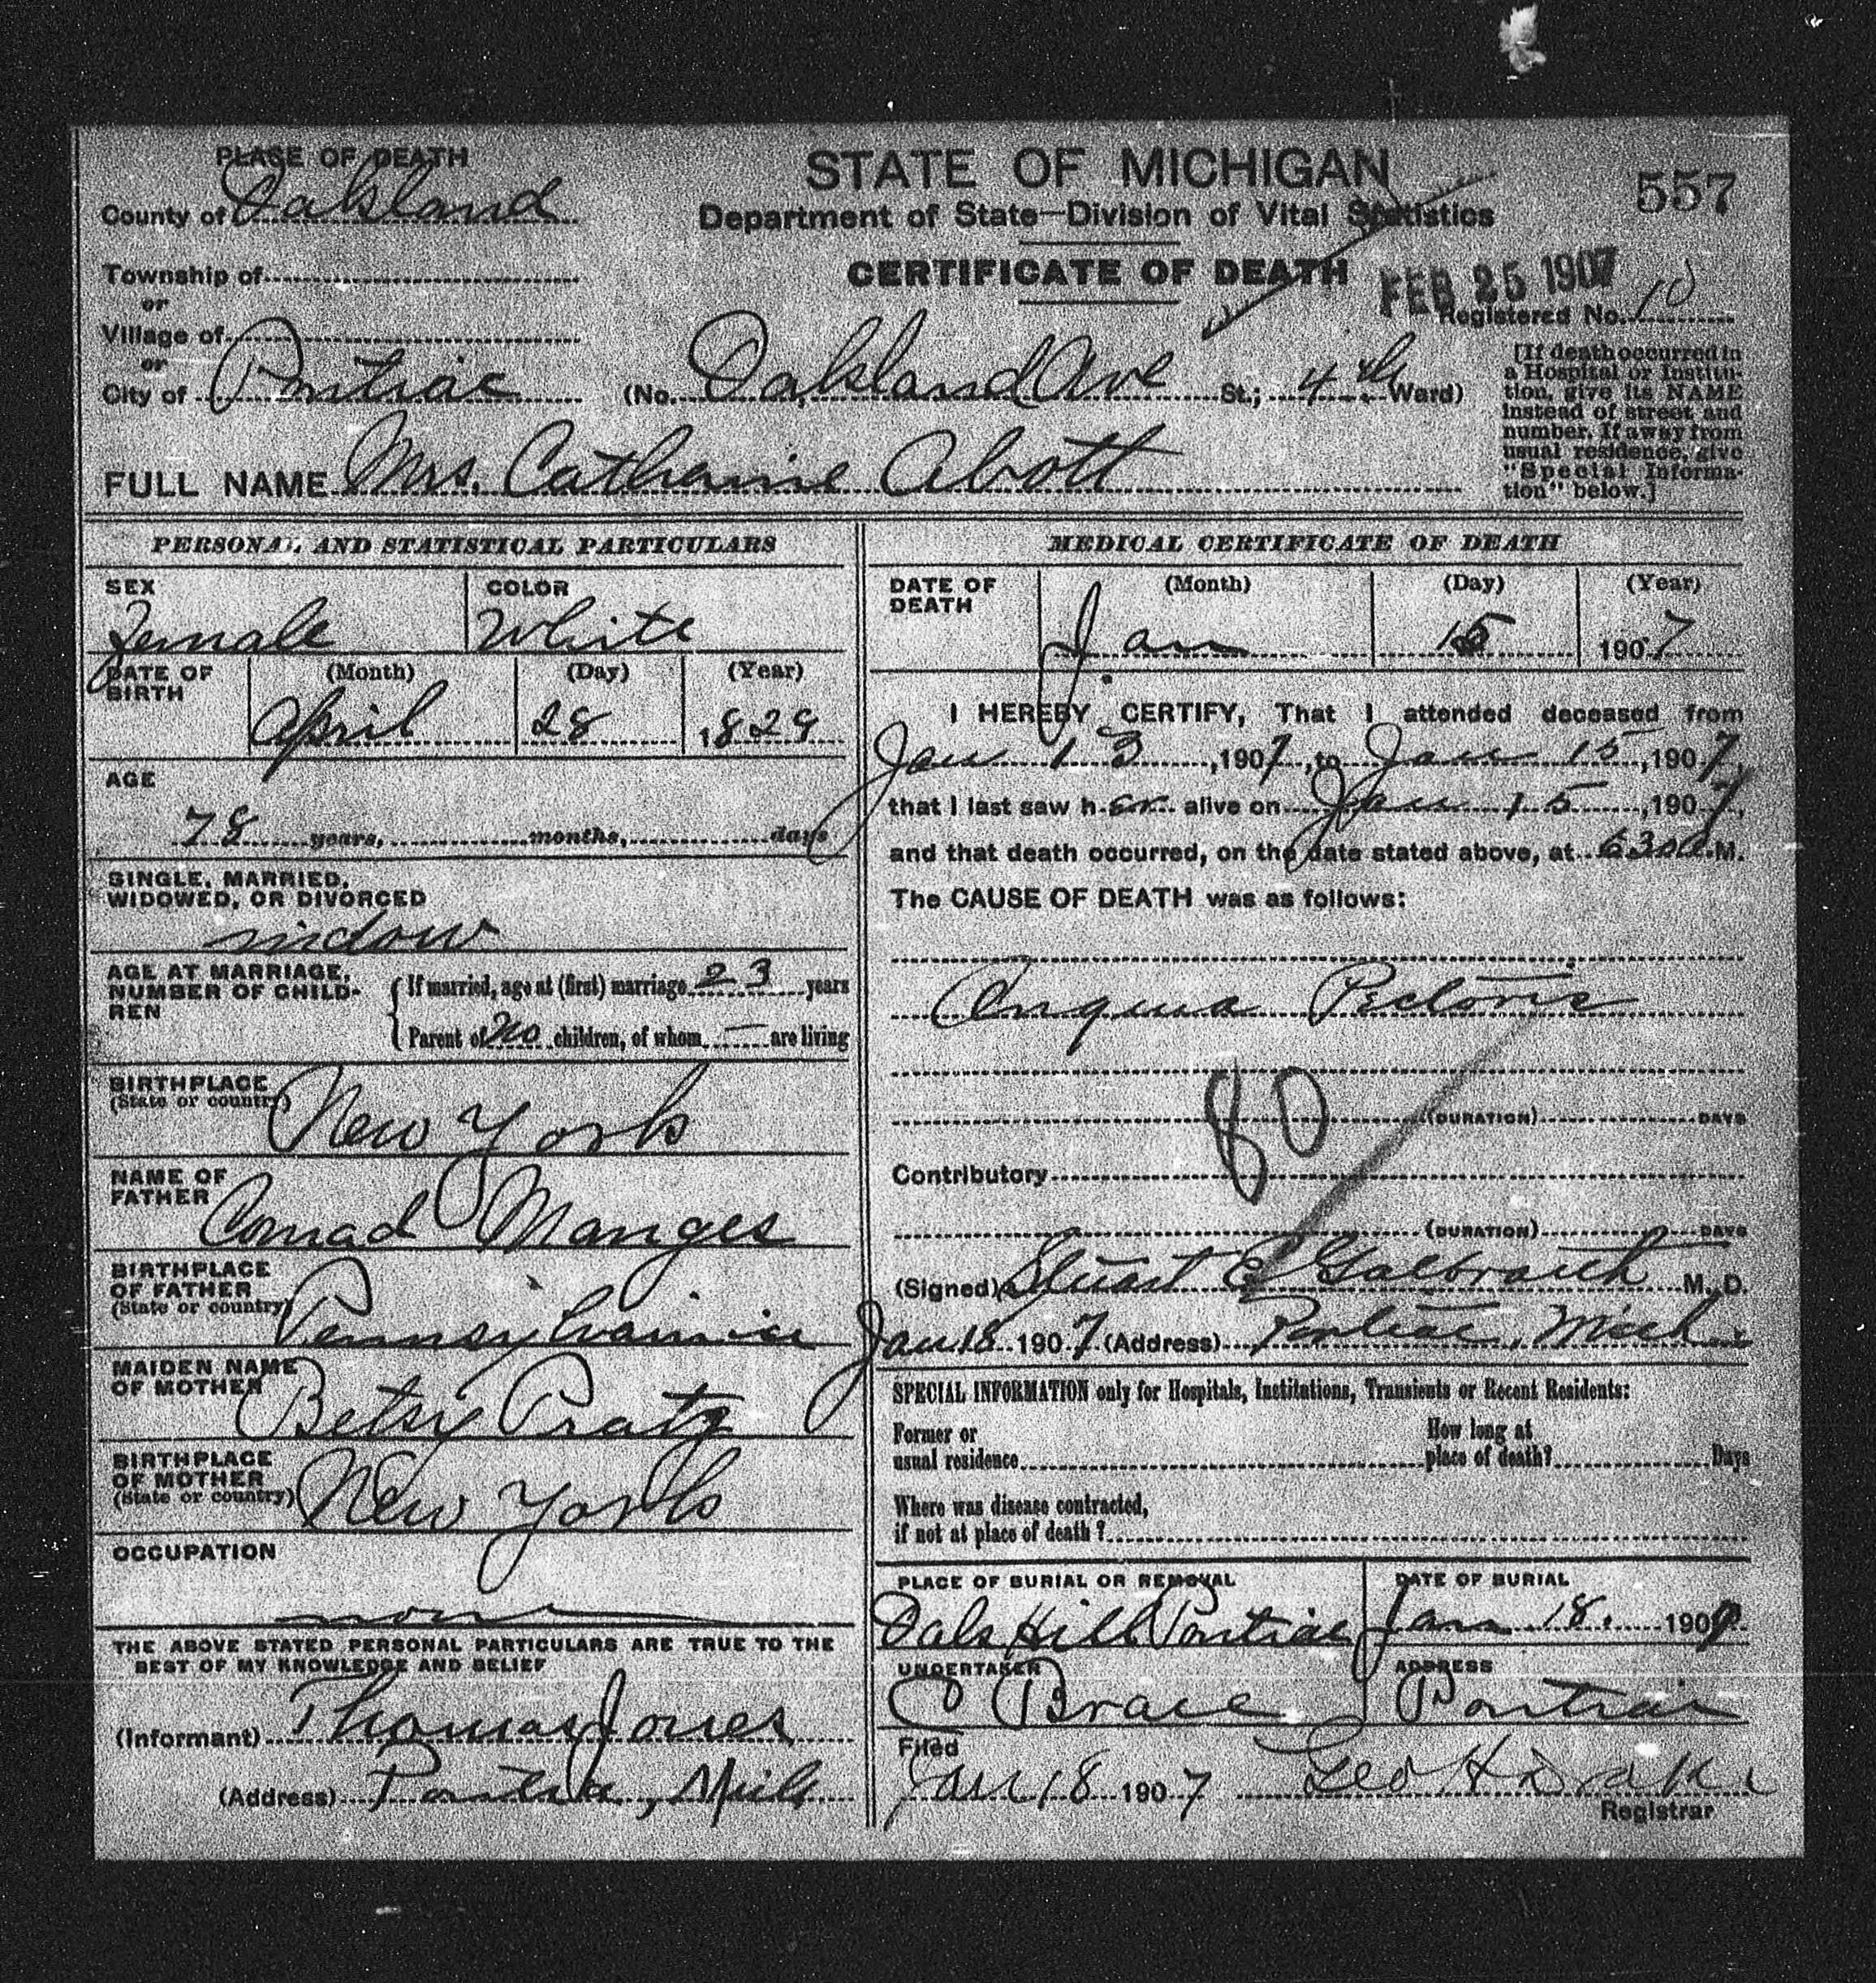 PLACE OF DEATH
County of Oakland
Township of
or
Village of
or
City of Pontiac
STATE OF MICHIGAN
Department of State—Division of Vital Statistics
CERTIFICATE OF DEATH
557
FEB 25 1907
Registered No. 10
(No. Oakland Ave St.; 4th Ward)
[If death occurred in
a Hospital or Institu-
tion, give its NAME
instead of street and
number. If away from
usual residence, give
"Special Informa-
tion" below.]
FULL NAME Mrs. Catharine Abott
PERSONAL AND STATISTICAL PARTICULARS
SEX
Female
COLOR
White
DATE OF
BIRTH
(Month) (Day) (Year)
April 28 1829
AGE
78 years, months, days
SINGLE, MARRIED,
WIDOWED, OR DIVORCED
widow
AGE AT MARRIAGE,
NUMBER OF CHILD-
REN
If married, age at (first) marriage 23 years
Parent of no children, of whom — are living
BIRTHPLACE
(State or country)
New York
NAME OF
FATHER
Conrad Manges
BIRTHPLACE
OF FATHER
(State or country)
Pennsylvania
MAIDEN NAME
OF MOTHER
Betsy Pratz
BIRTHPLACE
OF MOTHER
(State or country)
New York
OCCUPATION
none
THE ABOVE STATED PERSONAL PARTICULARS ARE TRUE TO THE
BEST OF MY KNOWLEDGE AND BELIEF
(Informant) Thomas Jones
(Address) Pontiac, Mich
MEDICAL CERTIFICATE OF DEATH
DATE OF
DEATH
(Month) (Day) (Year)
Jan 15 1907
I HEREBY CERTIFY, That I attended deceased from
Jan 13, 1907, to Jan 15, 1907,
that I last saw h er alive on Jan 15, 1907,
and that death occurred, on the date stated above, at 630 a.M.
The CAUSE OF DEATH was as follows:
Angina Pectoris
80
(DURATION) DAYS
Contributory
(DURATION) DAYS
(Signed) Stuart E Galbraith M. D.
Jan 18 1907 (Address) Pontiac, Mich
SPECIAL INFORMATION only for Hospitals, Institutions, Transients or Recent Residents:
Former or
usual residence
How long at
place of death? Days
Where was disease contracted,
if not at place of death?
PLACE OF BURIAL OR REMOVAL
Oak Hill Pontiac
DATE OF BURIAL
Jan 18. 1907
UNDERTAKER
C Brace
ADDRESS
Pontiac
Filed
Jan 18 1907 Geo H Drake
Registrar